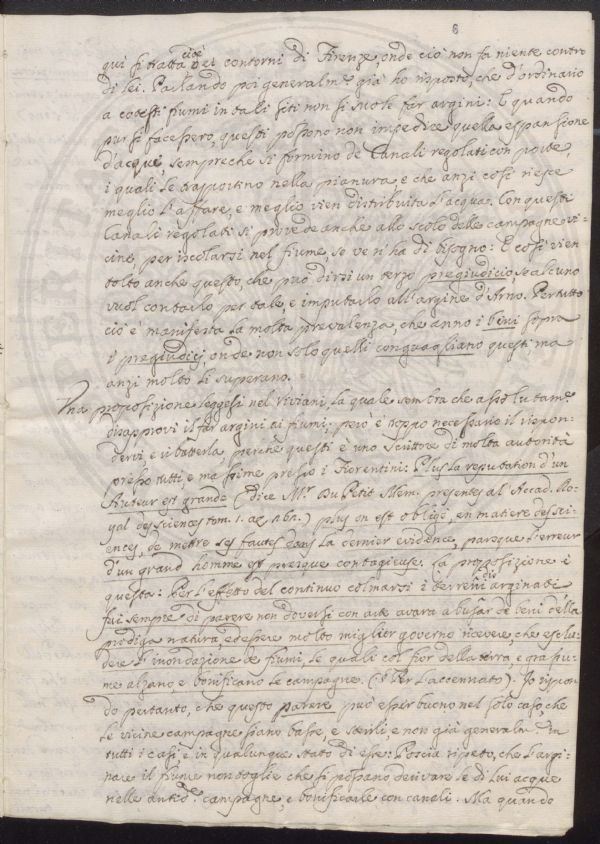 6
qui si tratta cioè dei contorni di Firenze, onde ciò non fa niente contro
di lei. Parlando poi generalm.e già ho risposto, che d'ordinario
a cotesti fiumi in tali siti non si suole far argini: E quando
pur si facessero, questi possono non impedire quella espansione
d'acque, sempreche si formino de Canali regolati con porte,
i quali le trasportino nella pianura e che anzi così riesce
meglio l'affare, e meglio vien distribuita l'acqua. Con questi
Canali regolati si provede anche allo scolo delle campagne vi-
cine, per iscolarsi nel fiume, se ve n'ha di bisogno: E così vien
tolto anche questo, che può dirsi un terzo pregiudicio, se alcuno
vuol contarlo per tale, e imputarlo all'argine d'Arno. Per tutto
ciò è manifesta la molta prevalenza, che anno i beni sopra
i pregiudicj, onde non solo quelli conguagliano questi, ma
anzi molto li superano.
Una proposizione leggesi nel Viviani, la quale sembra che assolutam.e
disapprovi il far argini ai fiumi: però è troppo necessario il rispon-
dervi e ribatterla, perchè questi è uno scrittore di molta autorità
presso tutti, e massime presso i Fiorentini: Plus la reputation d'un
Auteur est grande (dice M.r Du Petit Mem. presentes al Accad. Ro-
yal des sciences tom. 1. ) plus on est obligé, en matiere des sci-
ences, de mettre ses fautes dans la dernier evidence, parçeque l'erreur
d'un grand homme est presque contagieuse. La proposizione è
questa: Per l'effetto del continuo colmarsi i terreni arginati
fui sempre di parere non doversi con arte avara abusar de beni della
prodiga natura, ed essere molto miglior governo ricevere, che esclu-
dere l'inondazione de fiumi, le quali col fior della terra, e grassiu-
me alzano, e bonificano le campagne. Io rispon-
do pertanto, che questo parere può esser buono nel solo caso, che
le vicine campagne siano basse, e sterili, e non già generalm.e in
tutti i casi, e in qualunque stato di esse: Poscia ripeto, che l'argi-
nare il fiume non toglie che si possano derivare le di lui acque
nelle antid.e campagne, e bonificarle con canali. Ma quando